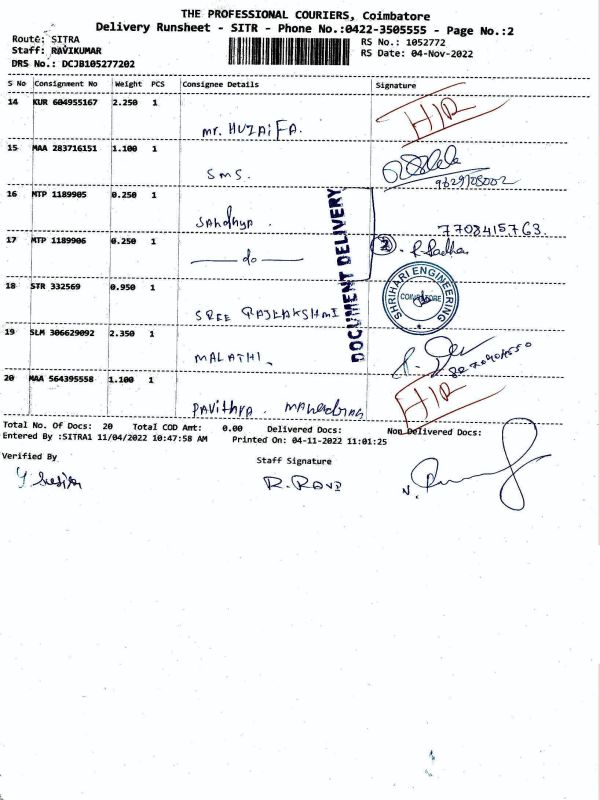 THE PROFESSIONAL COURIERS, Coimbatore
Delivery Runsheet - SITR - Phone No.:0422-3505555 - Page No.:2
Route: SITRA
Staff: RAVIKUMAR
DRS No.: DCJB105277202
RS No.: 1052772
RS Date: 04-Nov-2022
S No Consignment No Weight PCS Consignee Details Signature
14 KUR 604955167 2.250 1
Mr. HUZAIFA.
15 MAA 283716151 1.100 1
SMS.
16 MTP 1189905 0.250 1
Sandhya. 7708415763.
17 MTP 1189906 0.250 1
do
DOCUMENT DELIVERY
18 STR 332569 0.950 1
SREE RAJLAKSHMI
SHRIHARI ENGINEERING
COIMBATORE
19 SLM 306629092 2.350 1
MALATHI.
20 MAA 564395558 1.100 1
Pavithra.
Total No. Of Docs: 20 Total COD Amt: 0.00 Delivered Docs: Non Delivered Docs:
Entered By :SITRA1 11/04/2022 10:47:58 AM Printed On: 04-11-2022 11:01:25
Verified By
Staff Signature
R. RAVI